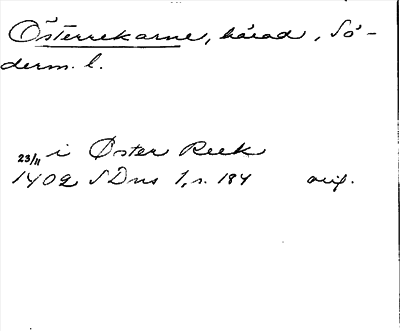 Österrekarne, härad, Sö-
derm. l.
23/11 i Øster Rek
1402 SDns 1, s. 184 orig.